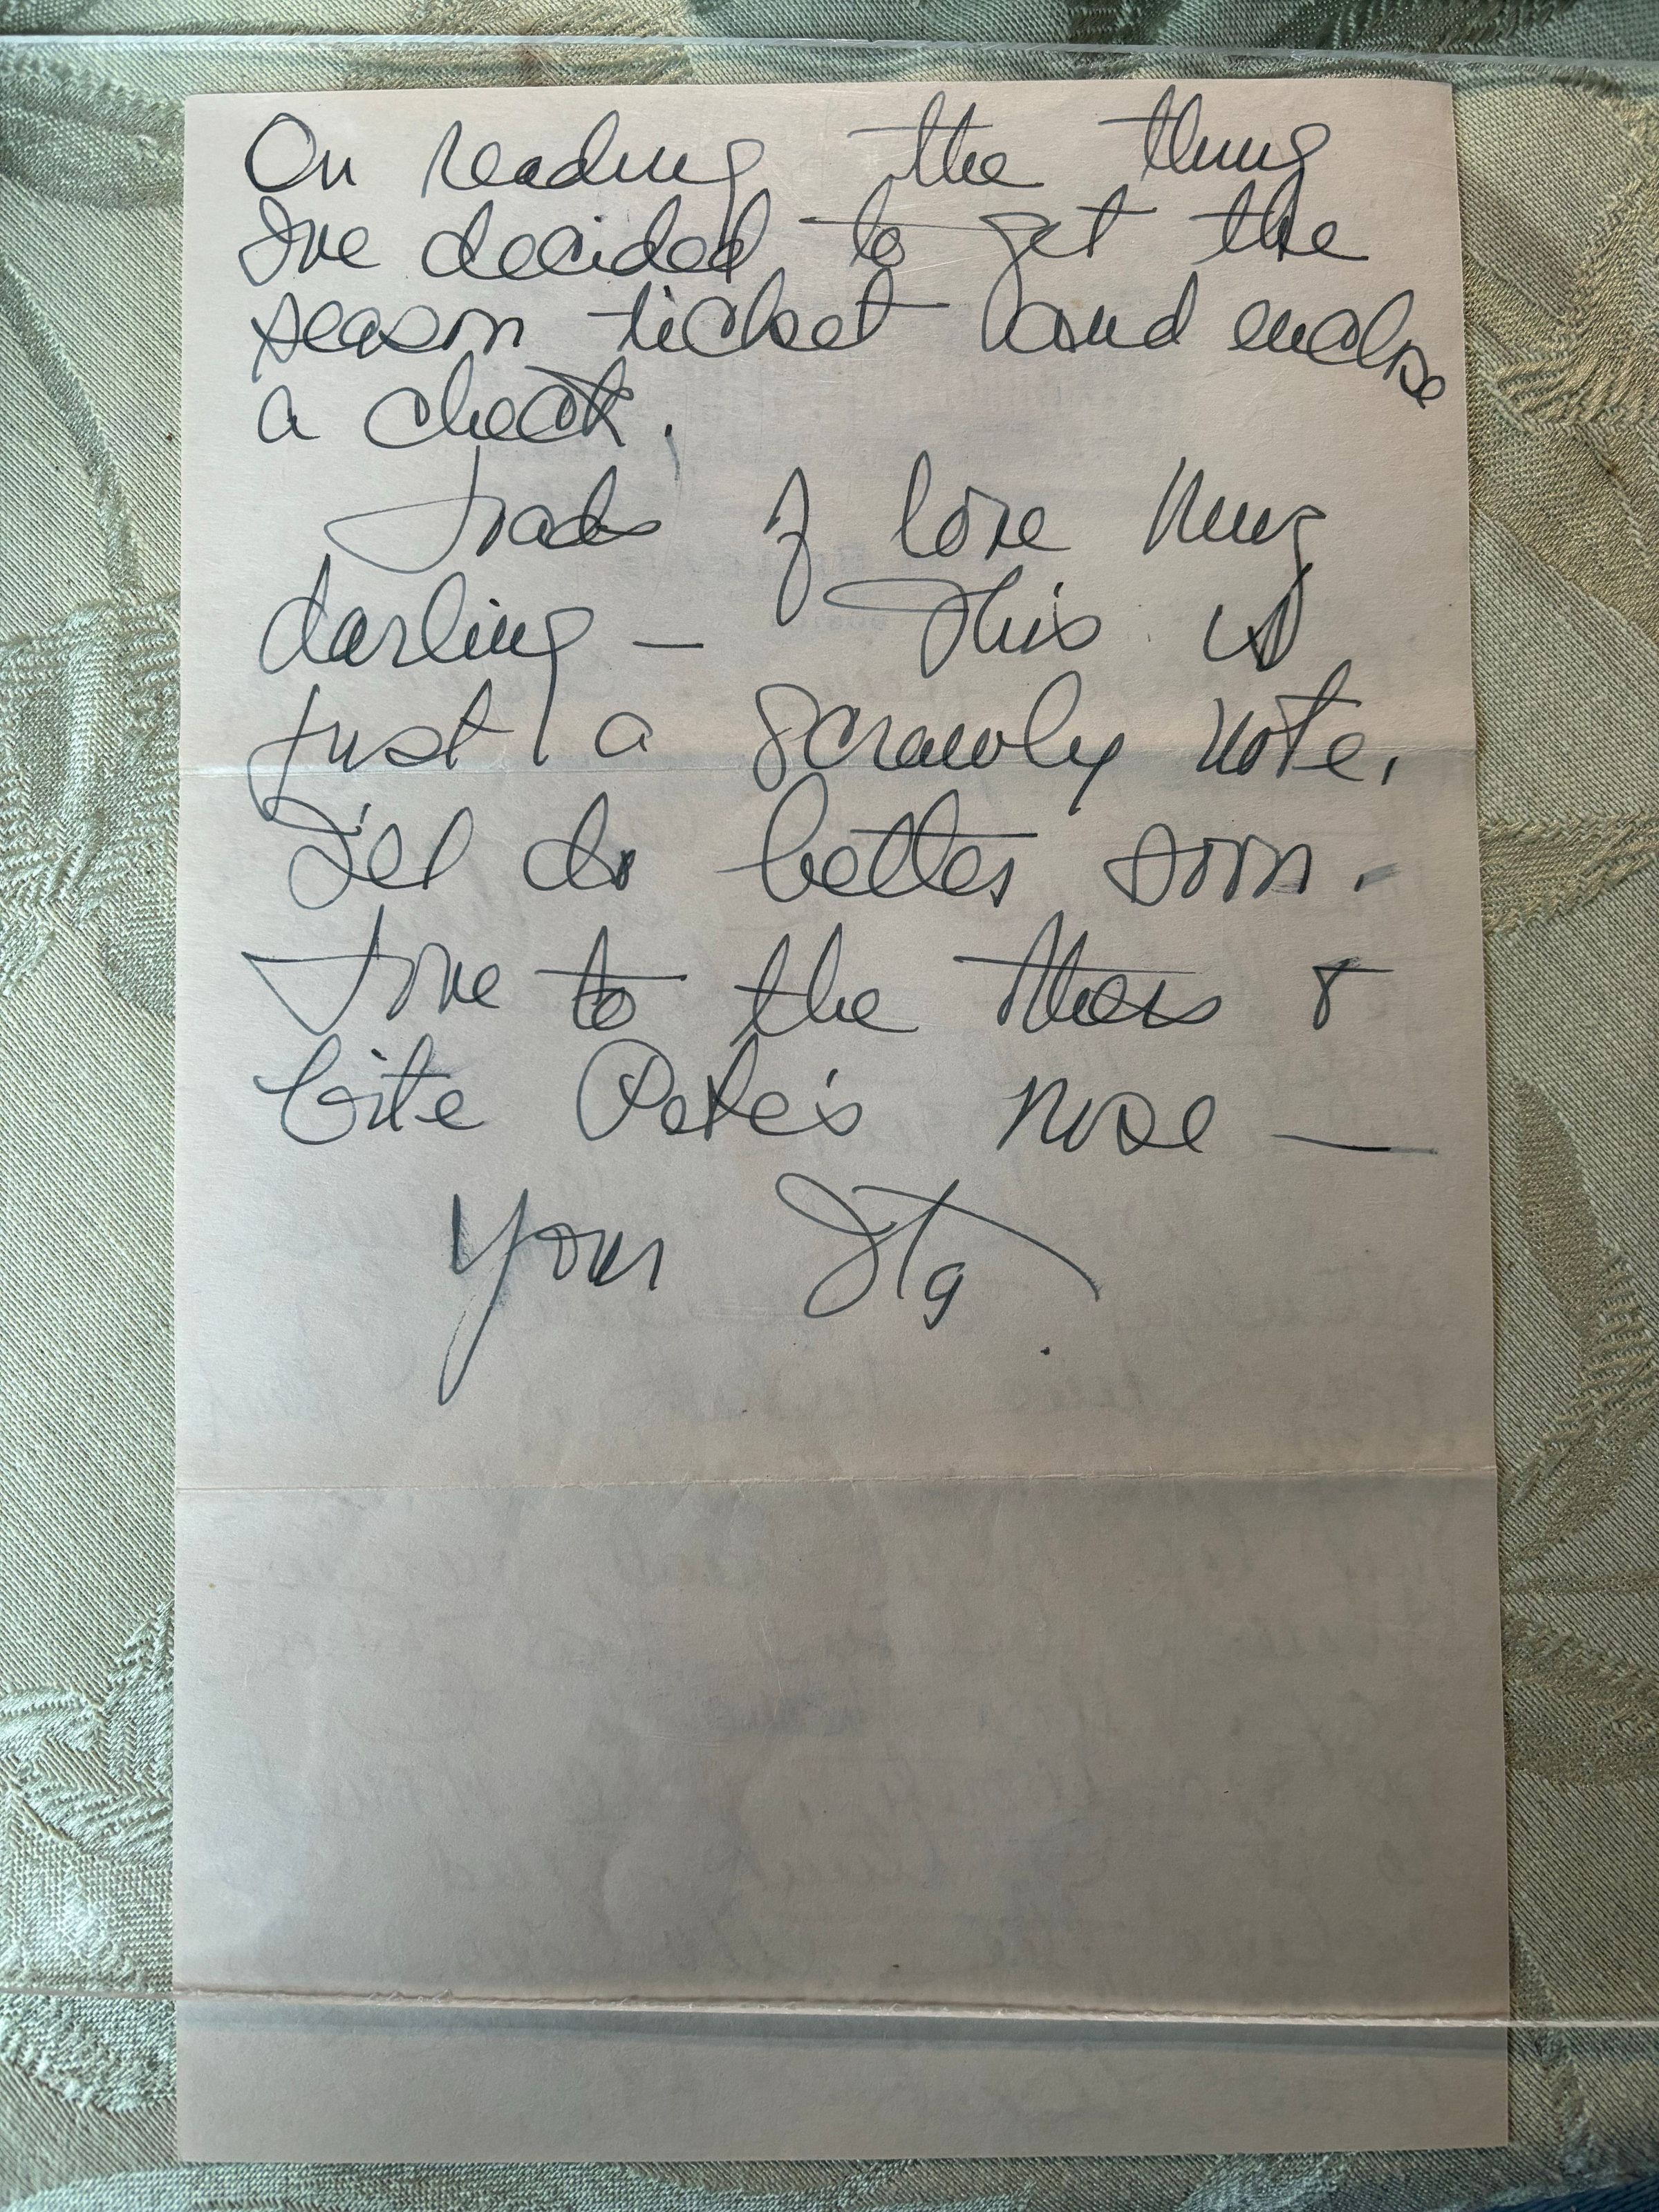 On reading the thing
I've decided to get the
season ticket and enclose
a check.
Loads of love
darling — This is
just a scrawly note.
I'll do better soon.
Love to the others &
bite Pete's nose —
Your